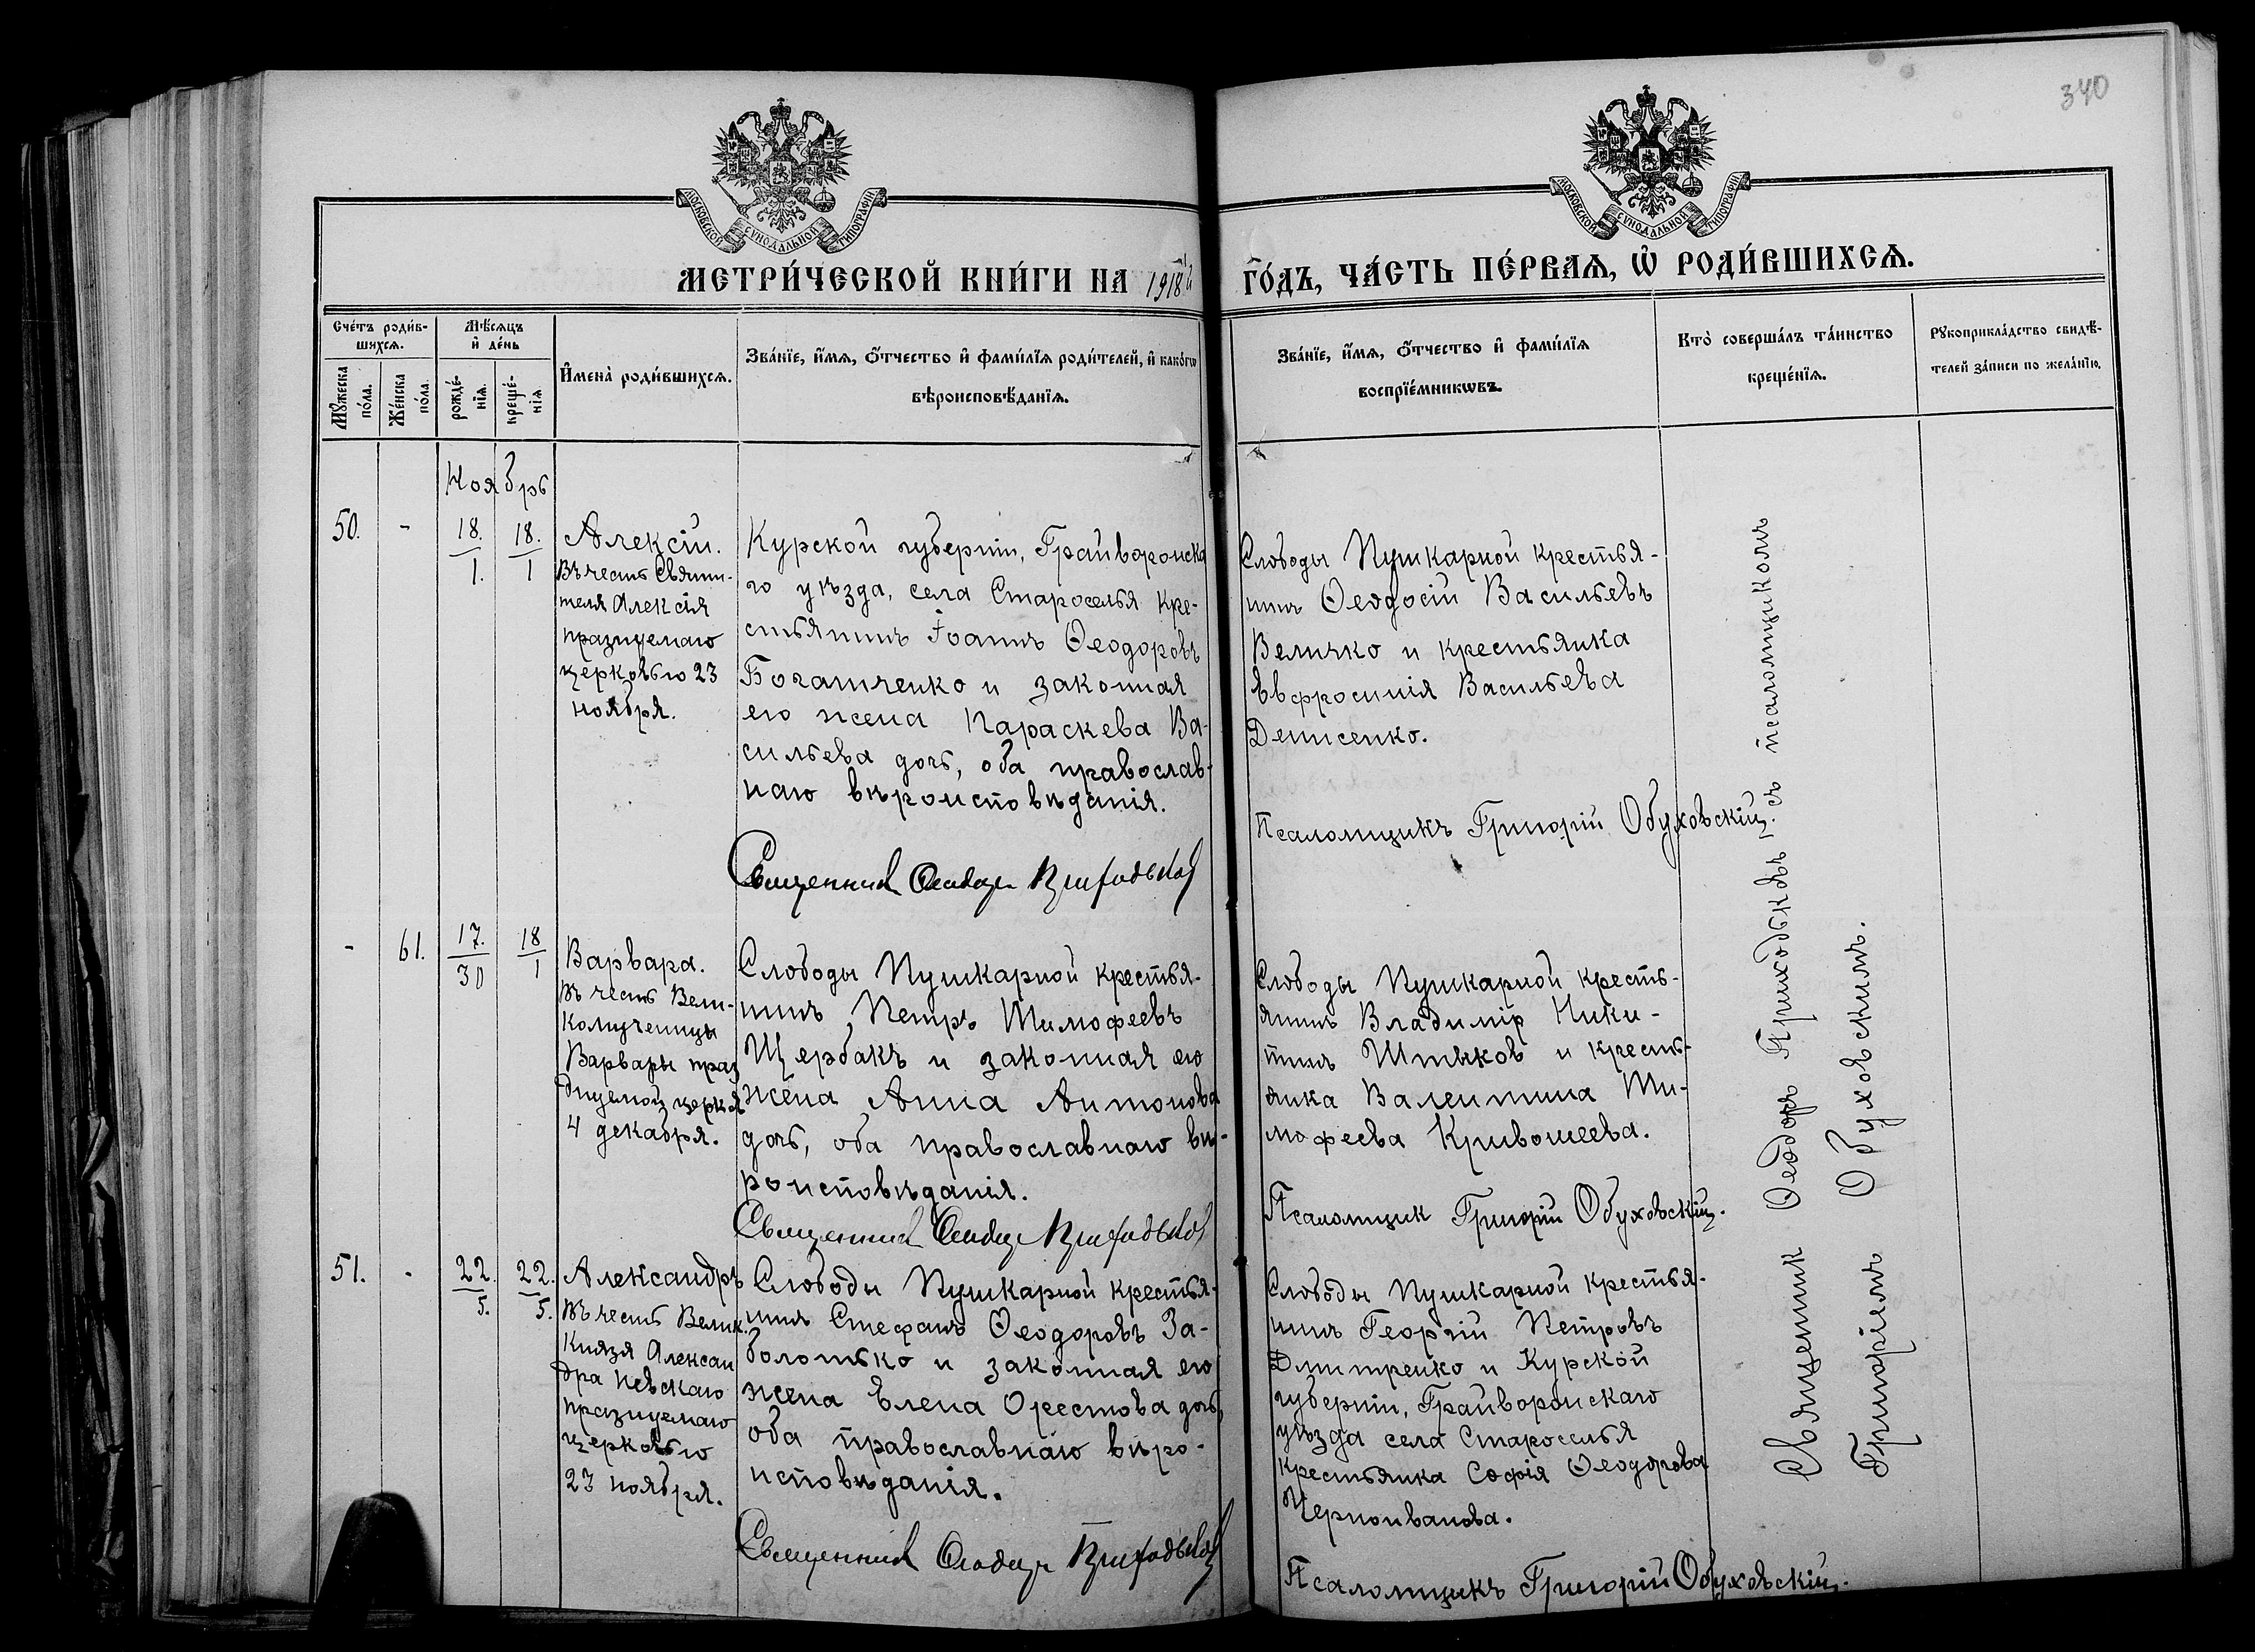 340
МОСКОВСКОЙ СѴНОДАЛЬНОЙ ТИПОГРАФІИ
МОСКОВСКОЙ СѴНОДАЛЬНОЙ ТИПОГРАФІИ
МЕТРИ́ЧЕСКОЙ КНИ́ГИ НА 1918й ГО́ДЪ, ЧА́СТЬ ПЕ́РВАЯ, Ѡ҆ РОДИ́ВШИХСЯ.
Сче́тъ роди́в-
шихся.
Му́жеска по́ла.
Же́нска по́ла.
Мѣ́сяцъ
и҆ де́нь
рожде́-
нїя.
креще́-
нїя
И҆мена̀ роди́вшихся.
Зва́нїе, и҆́мя, ѻ҆́тчество и҆ фами́лїя роди́телей, и҆ како́гѡ
вѣроисповѣ́данїя.
Зва́нїе, и҆́мя, ѻ҆́тчество и҆ фами́лїя
воспрїе́мникѡвъ.
Кто̀ соверша́лъ та́инство
креще́нїя.
Рукоприкла́дство свидѣ́-
телей за́писи по жела́нїю.
Ноябрь
50.
-
18.
1.
18.
1
Алексій.
Въ честь Святи-
теля Алексія
празнуемаго
церковью 23
ноября.
Курской губерніи, Грайворонска
го уѣзда, села Староселья кре-
стьянинъ Іоаннъ Ѳеодоровъ
Богатченко и законная
его жена Параскева Ва-
сильева дочь, оба православ-
наго вѣроисповѣданія.
Священникъ Ѳеодоръ Приходьков
Слободы Пушкарной крестья-
нинъ Ѳеодосій Васильевъ
Величко и крестьянка
Евфросинія Васильева
Денисенко.
Псаломщикъ Григорій Обуховскій.
-
61.
17.
30
18
1
Варвара.
Въ честь Вели-
комученицы
Варвары праз
днуемой церков
4 декабря.
Слободы Пушкарной крестья-
нинъ Петръ Тимофеевъ
Щербакъ и законная его
жена Анна Антонова
дочь, оба православнаго вѣ-
роисповѣданія.
Священникъ Ѳеодоръ Приходьков
Слободы Пушкарной кресть-
янинъ Владиміръ Ники-
тинъ Штыков и кресть-
янка Валентина Ти-
мофеева Кривошеева.
Псаломщик Григорій Обуховскій.
51.
-
22.
5.
22.
5.
Александръ
Въ честь Велик.
Князя Алексан
дра Невскаго
празнуемаго
церковью
23 ноября.
Слободы Пушкарной крестья-
нинъ Стефанъ Ѳеодоровъ За-
болотько и законная его
жена Елена Орестова дочь,
оба православнаго вѣро-
исповѣданія.
Священникъ Ѳеодоръ Приходьков
Слободы Пушкарной крестья-
нинъ Георгій Петровъ
Дмитренко и Курской
губерніи, Грайворонскаго
уѣзда села Староселья
крестьянка Софія Ѳеодорова
Черноиванова.
Псаломщикъ Григорій Обуховскій.
Священник Ѳеодоръ Приходьковъ съ псаломщикомъ
Григоріемъ Обуховскимъ.